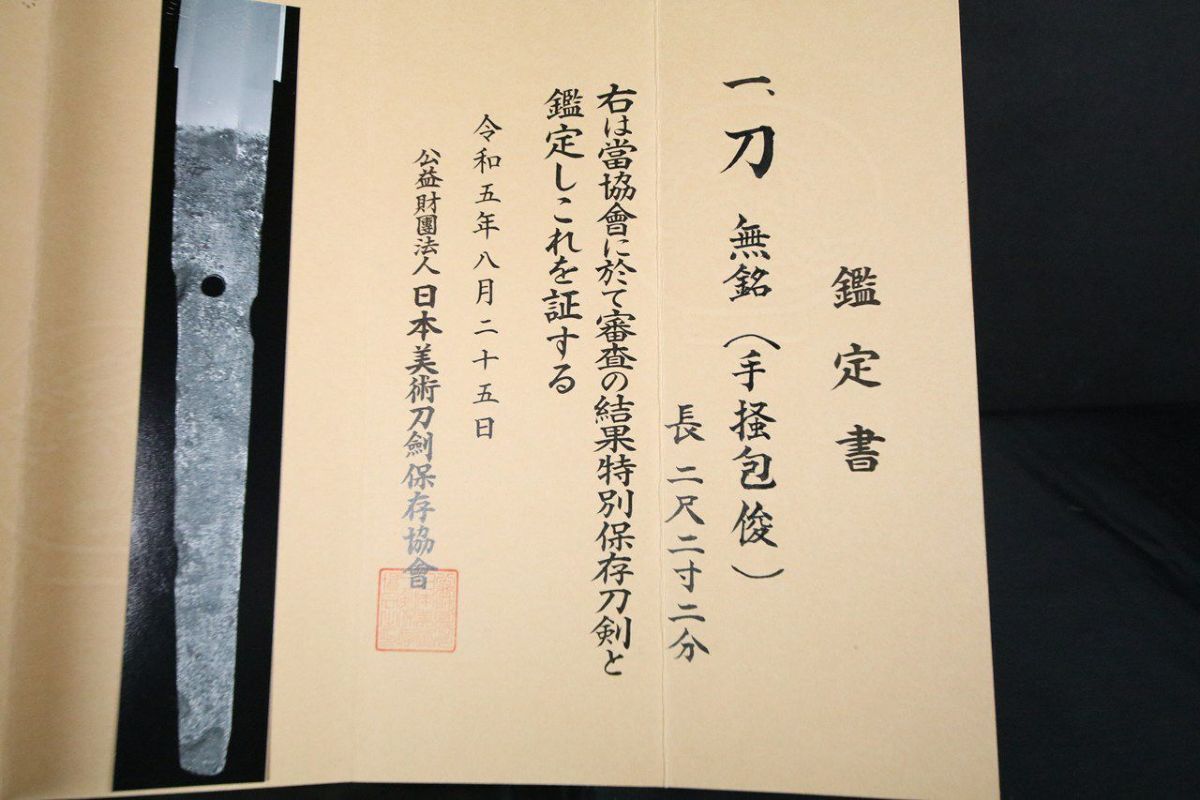 鑑定書
一、刀 無銘(手掻包俊)
長 二尺二寸二分
右は當協會に於て審査の結果特別保存刀剣と
鑑定しこれを証する
令和五年八月二十五日
公益財團法人 日本美術刀劍保存協會